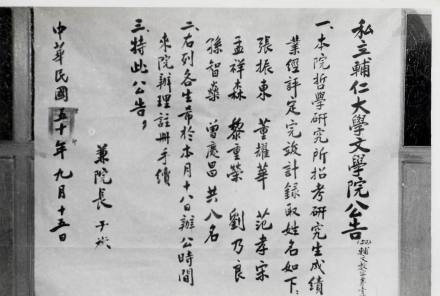 私立輔仁大學文學院公告
一、本院哲學研究所招考研究生成績
業經評定完竣計錄取姓名如下：
張振東 董耀華 范孝宗
孟祥森 黎重榮 劉乃良
孫智燊 曾慶昌 共八名
二、右列各生希於本月十八日辦公時間
來院辦理註冊手續
三、特此公告。
兼院長 于斌
中華民國五十年九月十五日